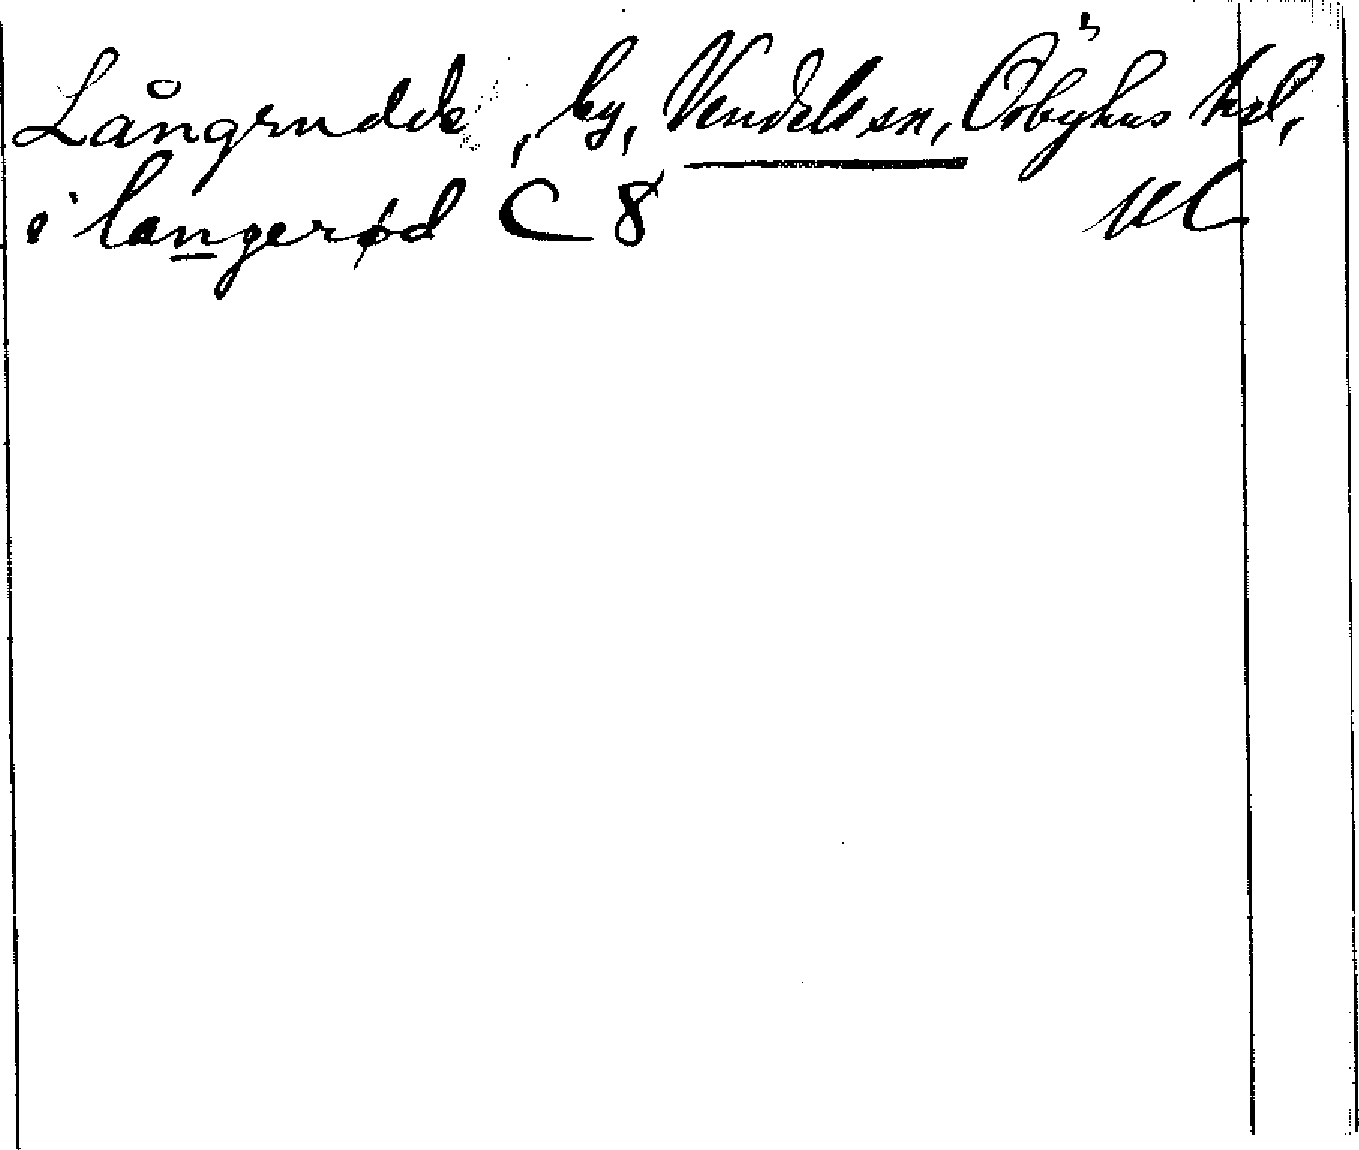 Långrudde, by, Vendels sn, Örbyhus hd,
i langerød C 8 Ul